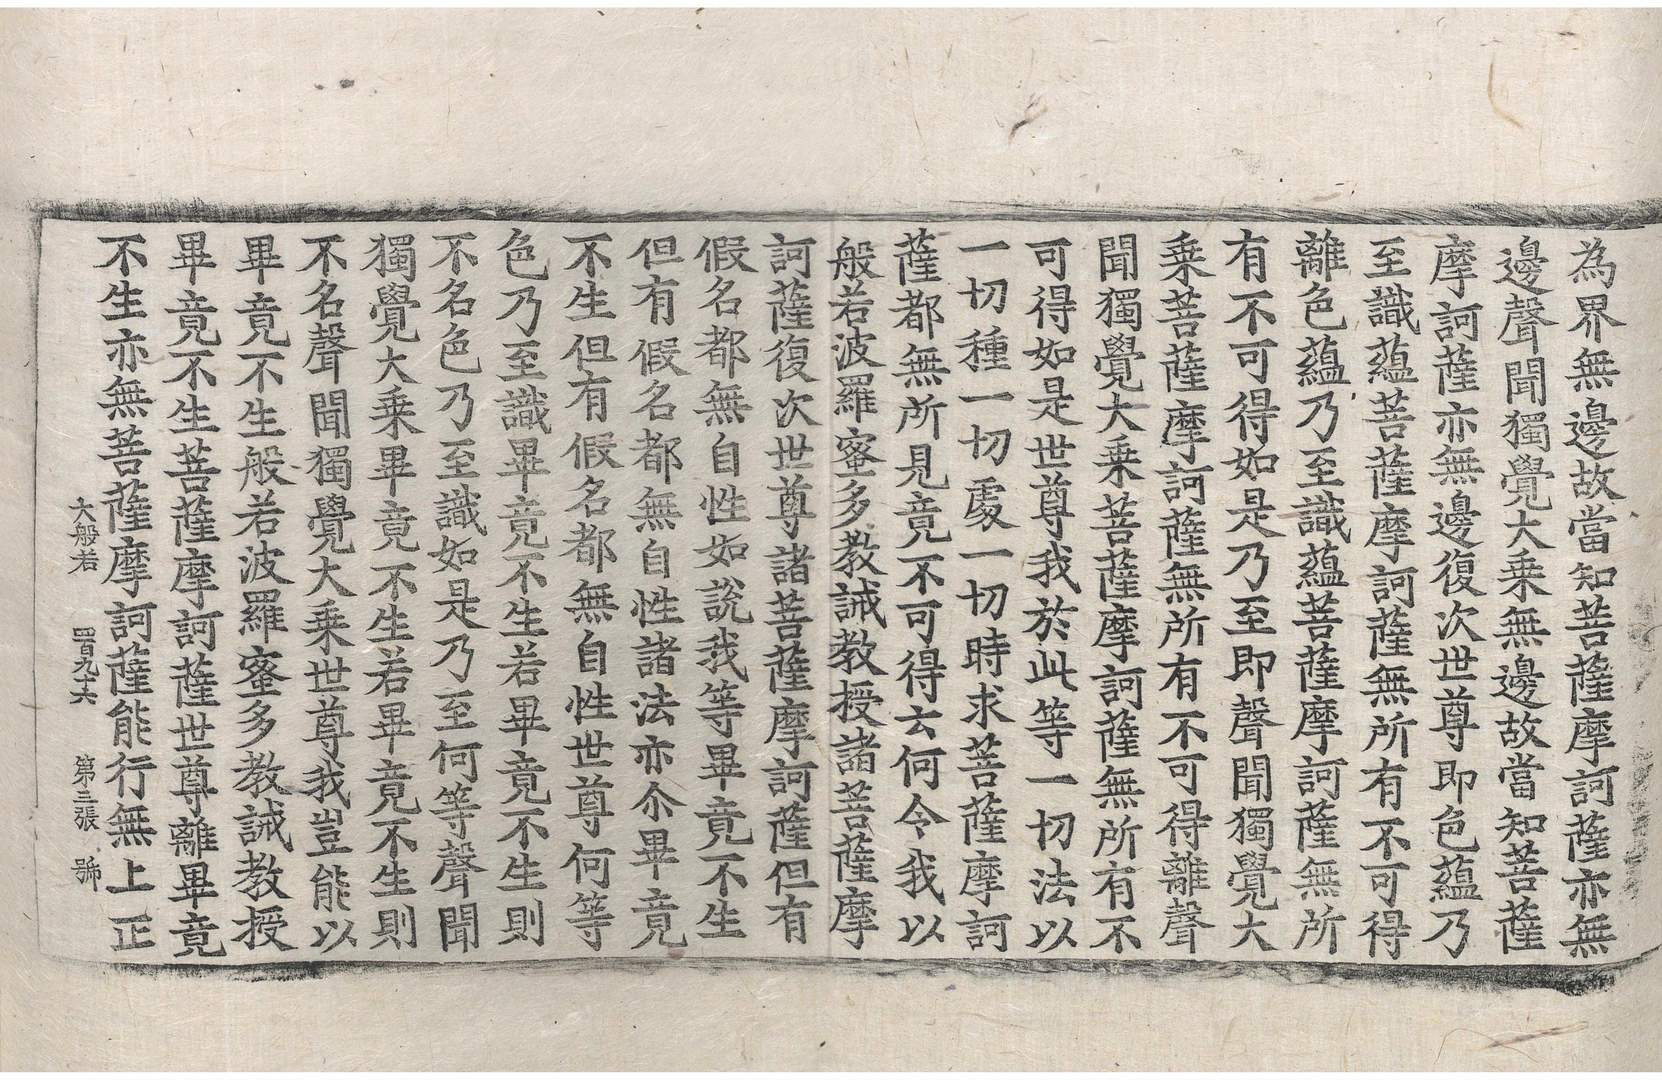 為界無邊故當知菩薩摩訶薩亦無
邊聲聞獨覺大乗無邊故當知菩薩
摩訶薩亦無邊復次世尊即色蘊乃
至識蘊菩薩摩訶薩無所有不可得
離色蘊乃至識蘊菩薩摩訶薩無所
有不可得如是乃至即聲聞獨覺大
乗菩薩摩訶薩無所有不可得離聲
聞獨覺大乗菩薩摩訶薩無所有不
可得如是世尊我於此等一切法以
一切種一切處一切時求菩薩摩訶
薩都無所見竟不可得云何令我以
般若波羅蜜多教誡教授諸菩薩摩
訶薩復次世尊諸菩薩摩訶薩但有
假名都無自性如說我等畢竟不生
但有假名都無自性諸法亦尒畢竟
不生但有假名都無自性世尊何等
色乃至識畢竟不生若畢竟不生則
不名色乃至識如是乃至何等聲聞
獨覺大乗畢竟不生若畢竟不生則
不名聲聞獨覺大乗世尊我豈能以
畢竟不生般若波羅蜜多教誡教授
畢竟不生菩薩摩訶薩世尊離畢竟
不生亦無菩薩摩訶薩能行無上正
大般若 四百九十六 第三張 號